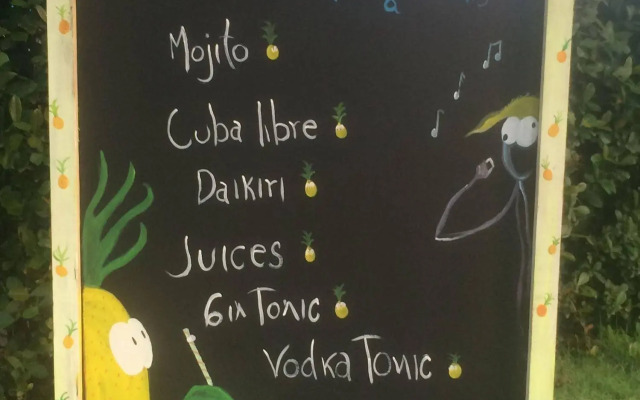 Mojito
Cuba libre
Daikiri
Juices
Gin Tonic
Vodka Tonic